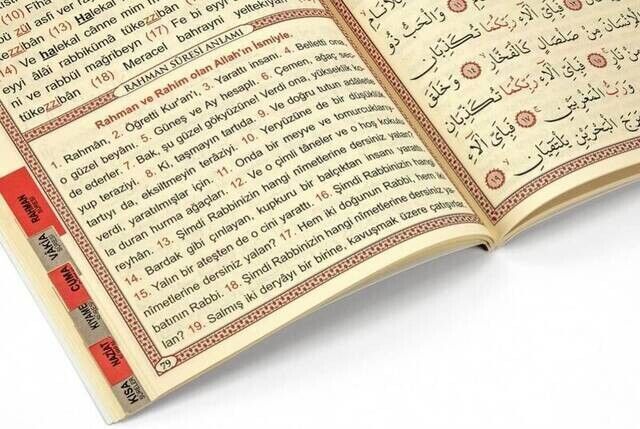 zül asfi ver rayhân
(13) Halekal
eyyi âlâi rabbikümâ tükezzibân
ni ve rabbül mağribeyn (17) Fe bi eyyi
tükezzibân (18) Meracel bahrayni yeltekıyan
RAHMAN SÛRESİ ANLAMI
Rahman ve Rahim olan Allah'ın İsmiyle.
1. Rahmân, 2. Öğretti Kur'an'ı, 3. Yarattı insanı. 4. Belletti ona,
o güzel beyânı. 5. Güneş ve Ay hesaplı. 6. Çemen, ağaç sec-
de ederler. 7. Bak, şu güzel gökyüzüne! Verdi ona, yükseklik ko-
yup teraziyi. 8. Ki, taşmayın tartıda. 9. Ve doğru tutun adâletle
tartıyı da, eksiltmeyin terâziyi. 10. Yeryüzüne de bir düşüklük
verdi, yaratılmışlar için. 11. Onda bir meyve ve tomurcuklarıyla
duran hurma ağaçları. 12. Ve o çimli tâneler ve o hoş kokulu
reyhân. 13. Şimdi Rabbinizin hangi nîmetlerine dersiniz yalan?
14. Bardak gibi çınlayan, kupkuru bir balçıktan insanı yarattı.
15. Yalın bir ateşten de o cini yarattı. 16. Şimdi Rabbinizin hangi
nîmetlerine dersiniz yalan? 17. Hem iki doğunun Rabbi, hem iki
batının Rabbi. 18. Şimdi Rabbinizin hangi nîmetlerine dersiniz ya-
lan? 19. Salmış iki deryâyı bir birine, kavuşmak üzere çatışırlar.
79
RAHMAN SÛRESİ
VÂKIA
CUMA
KIYAME
NAZİAT
KISA SÛRELER
وَالْحَبُّ ذُو
رَبِّكُمَا تُكَذِّبَانِ
مِنْ صَلْصَالٍ كَالْفَخَّارِ ۝١٤ وَخَلَقَ
فَبِاَيِّ اٰلَٓاءِ رَبِّكُمَا تُكَذِّبَانِ
وَرَبُّ الْمَغْرِبَيْنِ ۝١٧ فَبِاَيِّ اٰلَٓاءِ
مَرَجَ الْبَحْرَيْنِ يَلْتَقِيَانِ ۝١٩